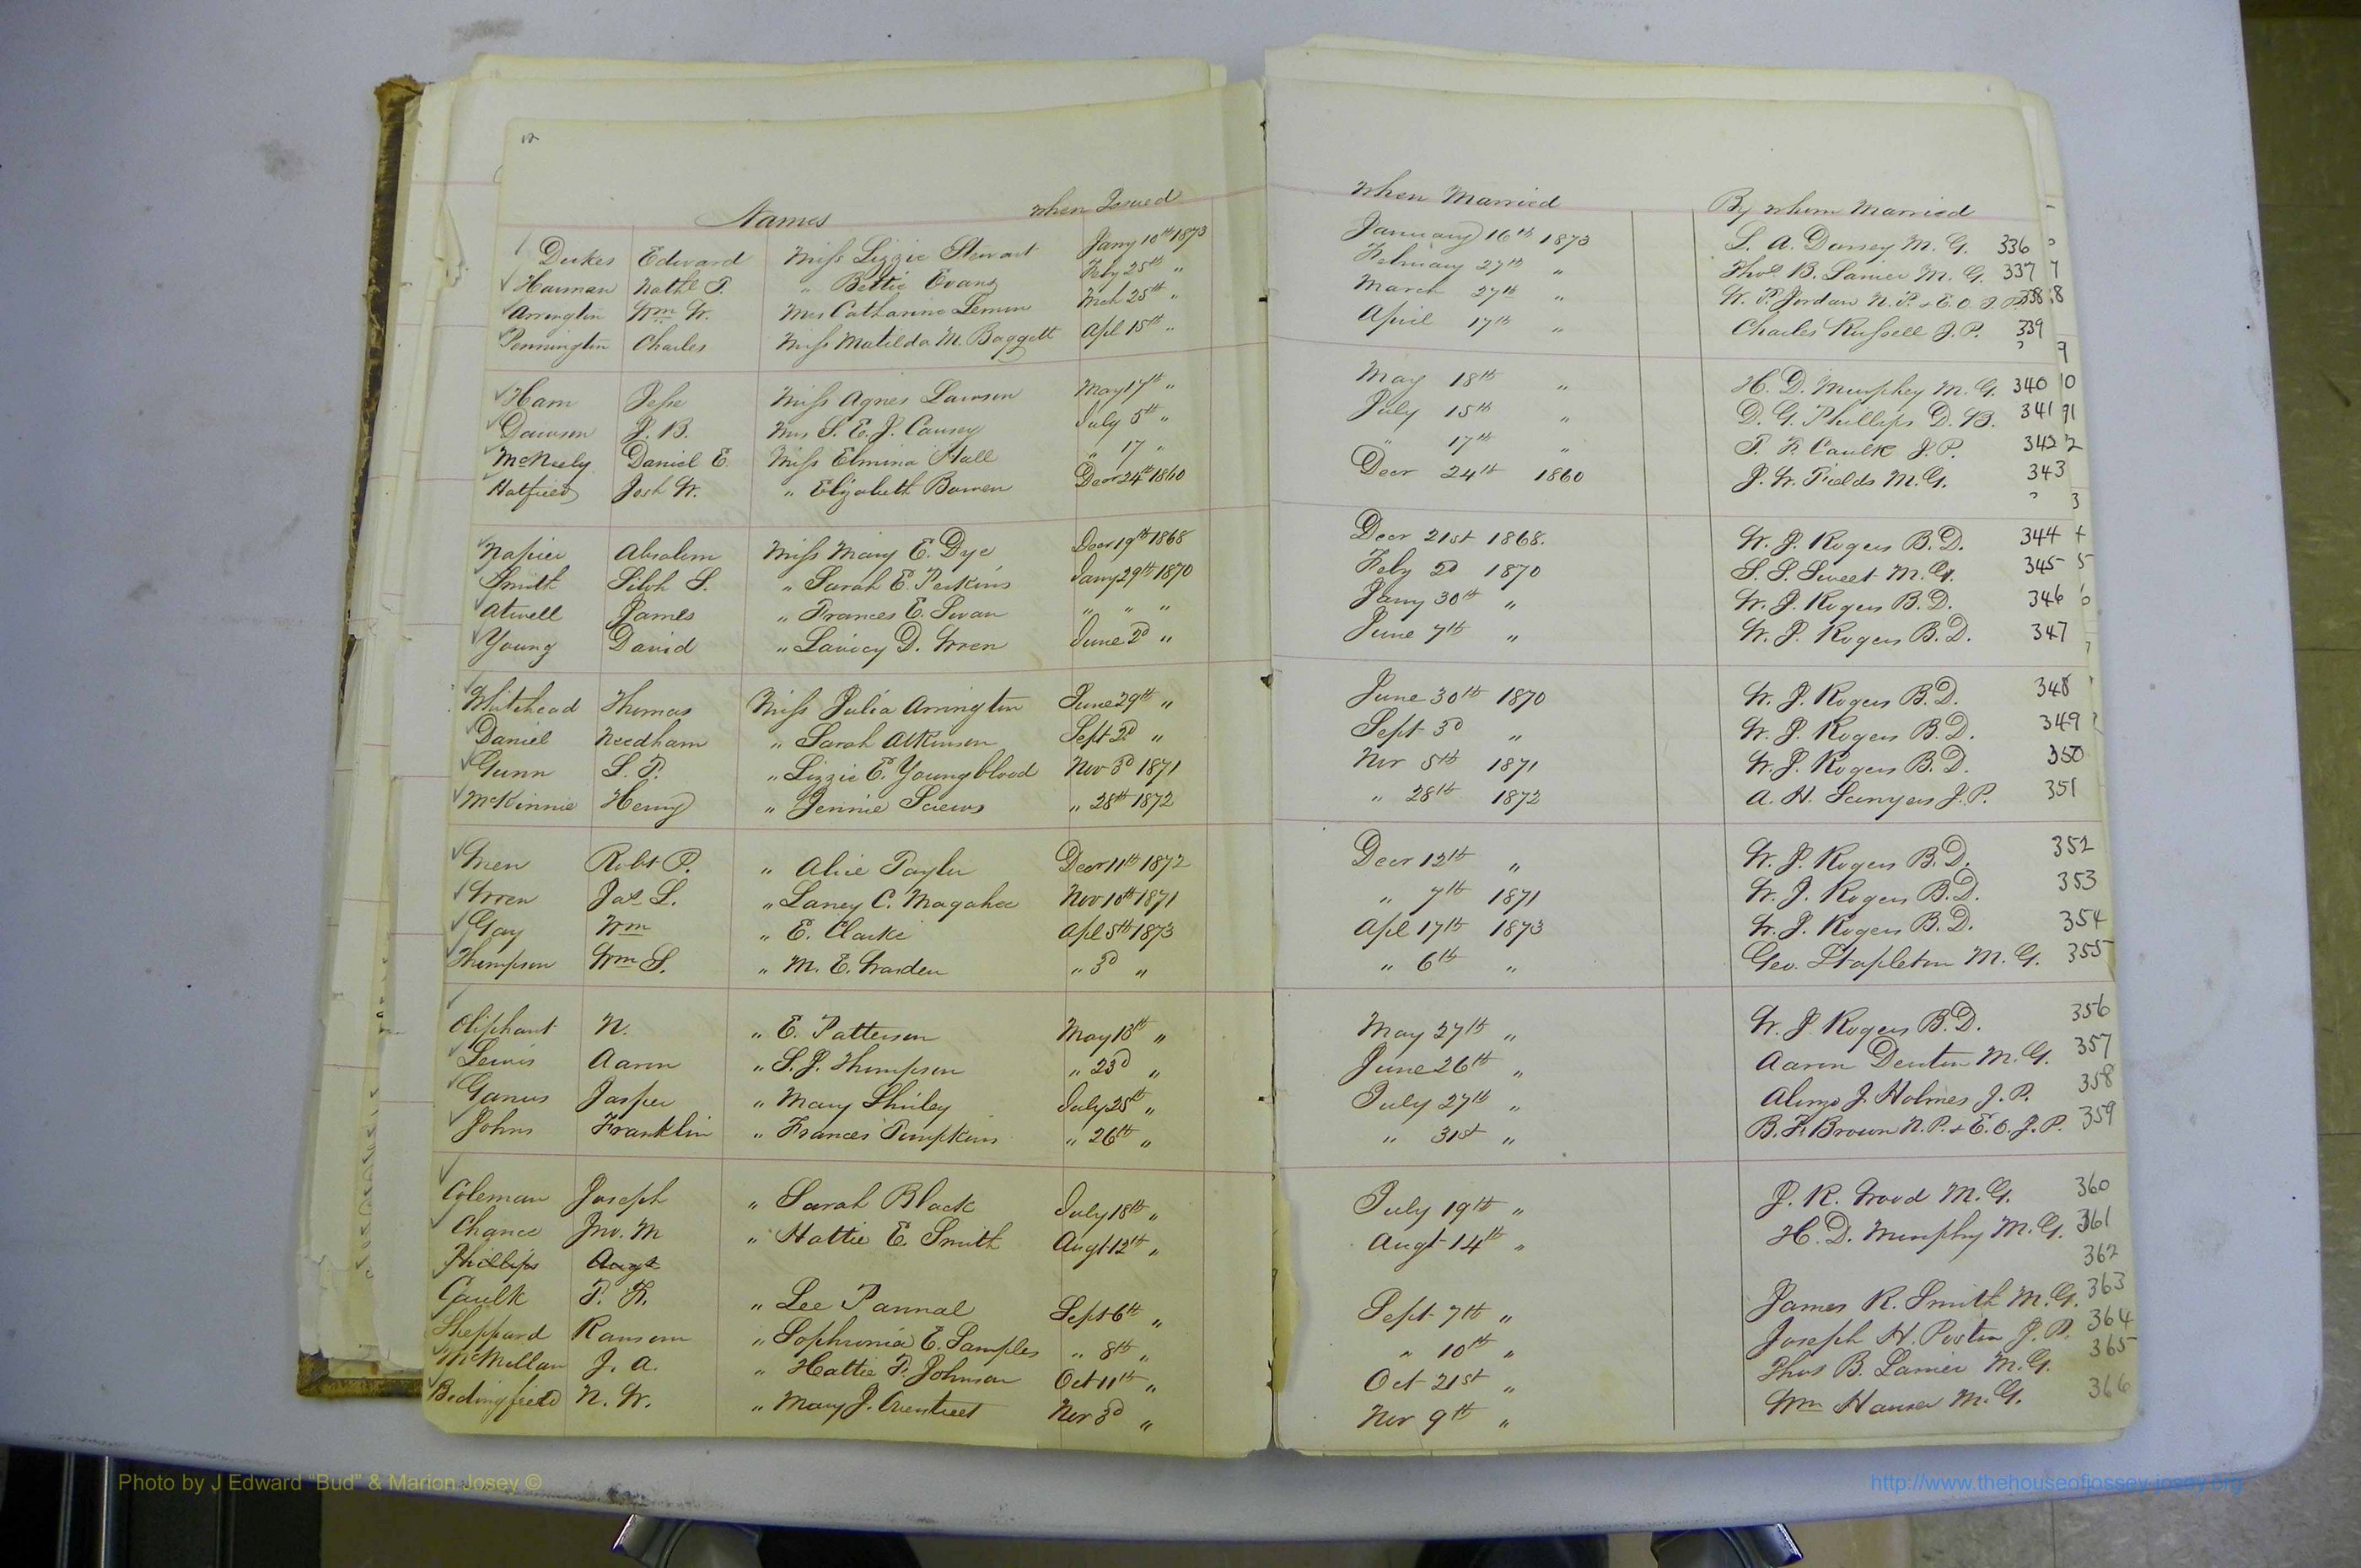 12
Names when Issued when Married By whom Married
Dukes Edward Miss Lizzie Stewart Jany 10th 1873 January 16th 1873 S. A. Dorsey M. G. 336
Harman Nathl T. " Bettie Evans Feby 25th " February 27th " Thos B. Lanier M. G. 337 7
Arrington Wm W. Mrs Catharine Lemon Mch 25th " March 27th " W. P. Jordan N. P. & E. O. J. P. 338 8
Pennington Charles Miss Matilda M. Baggett Apl 15th " April 17th " Charles Russell J. P. 339
? 9
Ham Jesse Miss Agnes Lawson May 17th " May 18th " H. D. Murphey M. G. 340 10
Dawson J. B. Mrs S. E. J. Causey July 5th " July 15th " D. G. Phillips D. B. 341 91
McNeely Daniel E. Miss Elmina Hall " 17 " " 17th " T. F. Caulk J. P. 342 2
Hatfield Josh W. " Elizabeth Bowen Decr 24th 1860 Decr 24th 1860 J. W. Fields M. G. 343
? 3
Napier Absolem Miss Mary E. Dye Decr 19th 1868 Decr 21st 1868. W. J. Rogers B. D. 344 4
Smith Siloh S. " Sarah E. Perkins Jany 29th 1870 Feby 2d 1870 S. S. Sweet M. G. 345 5
Atwell James " Frances E. Swan " " " Jany 30th " W. J. Rogers B. D. 346 6
Young David " Lavicy D. Wren June 2d " June 7th " W. J. Rogers B. D. 347
Whitehead Thomas Miss Julia Arrington June 29th " June 30th 1870 W. J. Rogers B. D. 348
Daniel Needham " Sarah Atkinson Sept 2d " Sept 3d " W. J. Rogers B. D. 349
Gunn S. P. " Lizzie E. Youngblood Nov 3d 1871 Nov 5th 1871 W. J. Rogers B. D. 350
McKinnie Henry " Jennie Screws " 28th 1872 " 28th 1872 A. H. Sawyers J. P. 351
Wren Robt P. " Alice Taylor Decr 11th 1872 Decr 12th " W. J. Rogers B. D. 352
Wren Jas L. " Laney C. Magahee Nov 10th 1871 " 7th 1871 W. J. Rogers B. D. 353
Gay Wm " E. Clarke Apl 5th 1873 Apl 17th 1873 W. J. Rogers B. D. 354
Thompson Wm S. " M. E. Warden " 3d " " 6th " Geo. Stapleton M. G. 355
Oliphant N. " E. Patterson May 13th " May 27th " W. J. Rogers B. D. 356
Lewis Aaron " S. J. Thompson " 23d " June 26th " Aaron Denton M. G. 357
Ganus Jasper " Mary Shirley July 25th " July 27th " Alonzo J. Holmes J. P. 358
Johns Franklin " Frances Pumpkins " 26th " " 31st " B. F. Brown N. P. & E. O. J. P. 359
Coleman Joseph " Sarah Black July 18th " July 19th " J. R. Wood M. G. 360
Chance Jno. M " Hattie E. Smith Augt 12th " Augt 14th " H. D. Murphy M. G. 361
Phillips Augt 362
Caulk T. F. " Lee Pannal Sept 6th " Sept 7th " James R. Smith M. G. 363
Sheppard Ransom " Sophronia E. Samples " 8th " " 10th " Joseph H. Polhill J. P. 364
McMillan J. A. " Hattie F. Johnson Oct 11th " Oct 21st " Thos B. Lanier M. G. 365
Bedingfield N. W. " Mary J. Overstreet Nov 3d " Nov 9th " Wm Hauser M. G. 366
Photo by J Edward "Bud" & Marion Josey © http://www.thehouseofjossey-josey.org